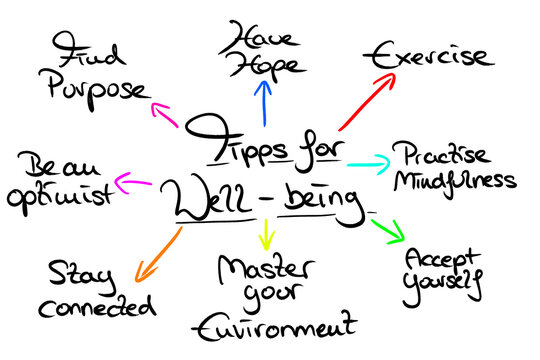 Find
Purpose
Have
Hope
Exercise
Tipps for
Well-being
Be an
optimist
Practise
Mindfulness
Stay
connected
Master
your
Environment
Accept
yourself